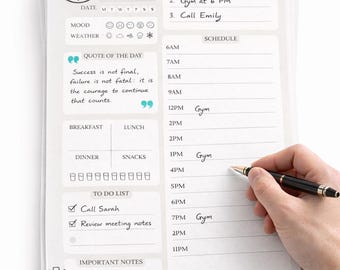 DATE M T W T F S S
MOOD
WEATHER
2. Gym at 6 PM
3. Call Emily
QUOTE OF THE DAY
Success is not final,
failure is not fatal: it is
the courage to continue
that counts.
BREAKFAST LUNCH
DINNER SNACKS
TO DO LIST
Call Sarah
Review meeting notes
IMPORTANT NOTES
SCHEDULE
6AM
7AM
8AM
9AM
12PM Gym
2PM
2PM
1PM Gym
4PM
5PM
6PM
7PM Gym
2PM
1PM
11PM